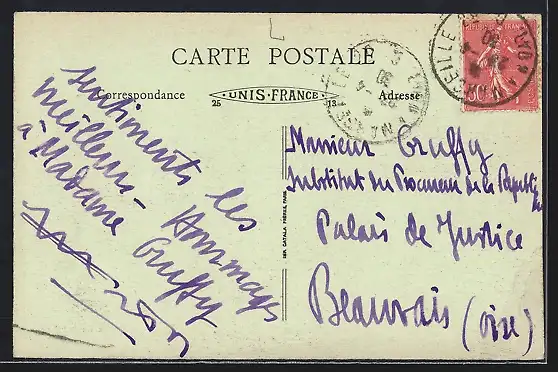 CARTE POSTALE
Correspondance
25 UNIS-FRANCE 13
Adresse
sentiments les
meilleurs - Hommages
à Madame Gruffy
Monsieur Gruffy
Substitut du Procureur de la République
Palais de Justice
Beauvais (Oise)
IMP. CATALA FRÈRES, PARIS